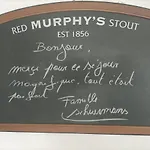 RED MURPHY'S STOUT
EST 1856
Bonjour,
merci pour ce séjour
magnifique, tout était
parfait.
Famille